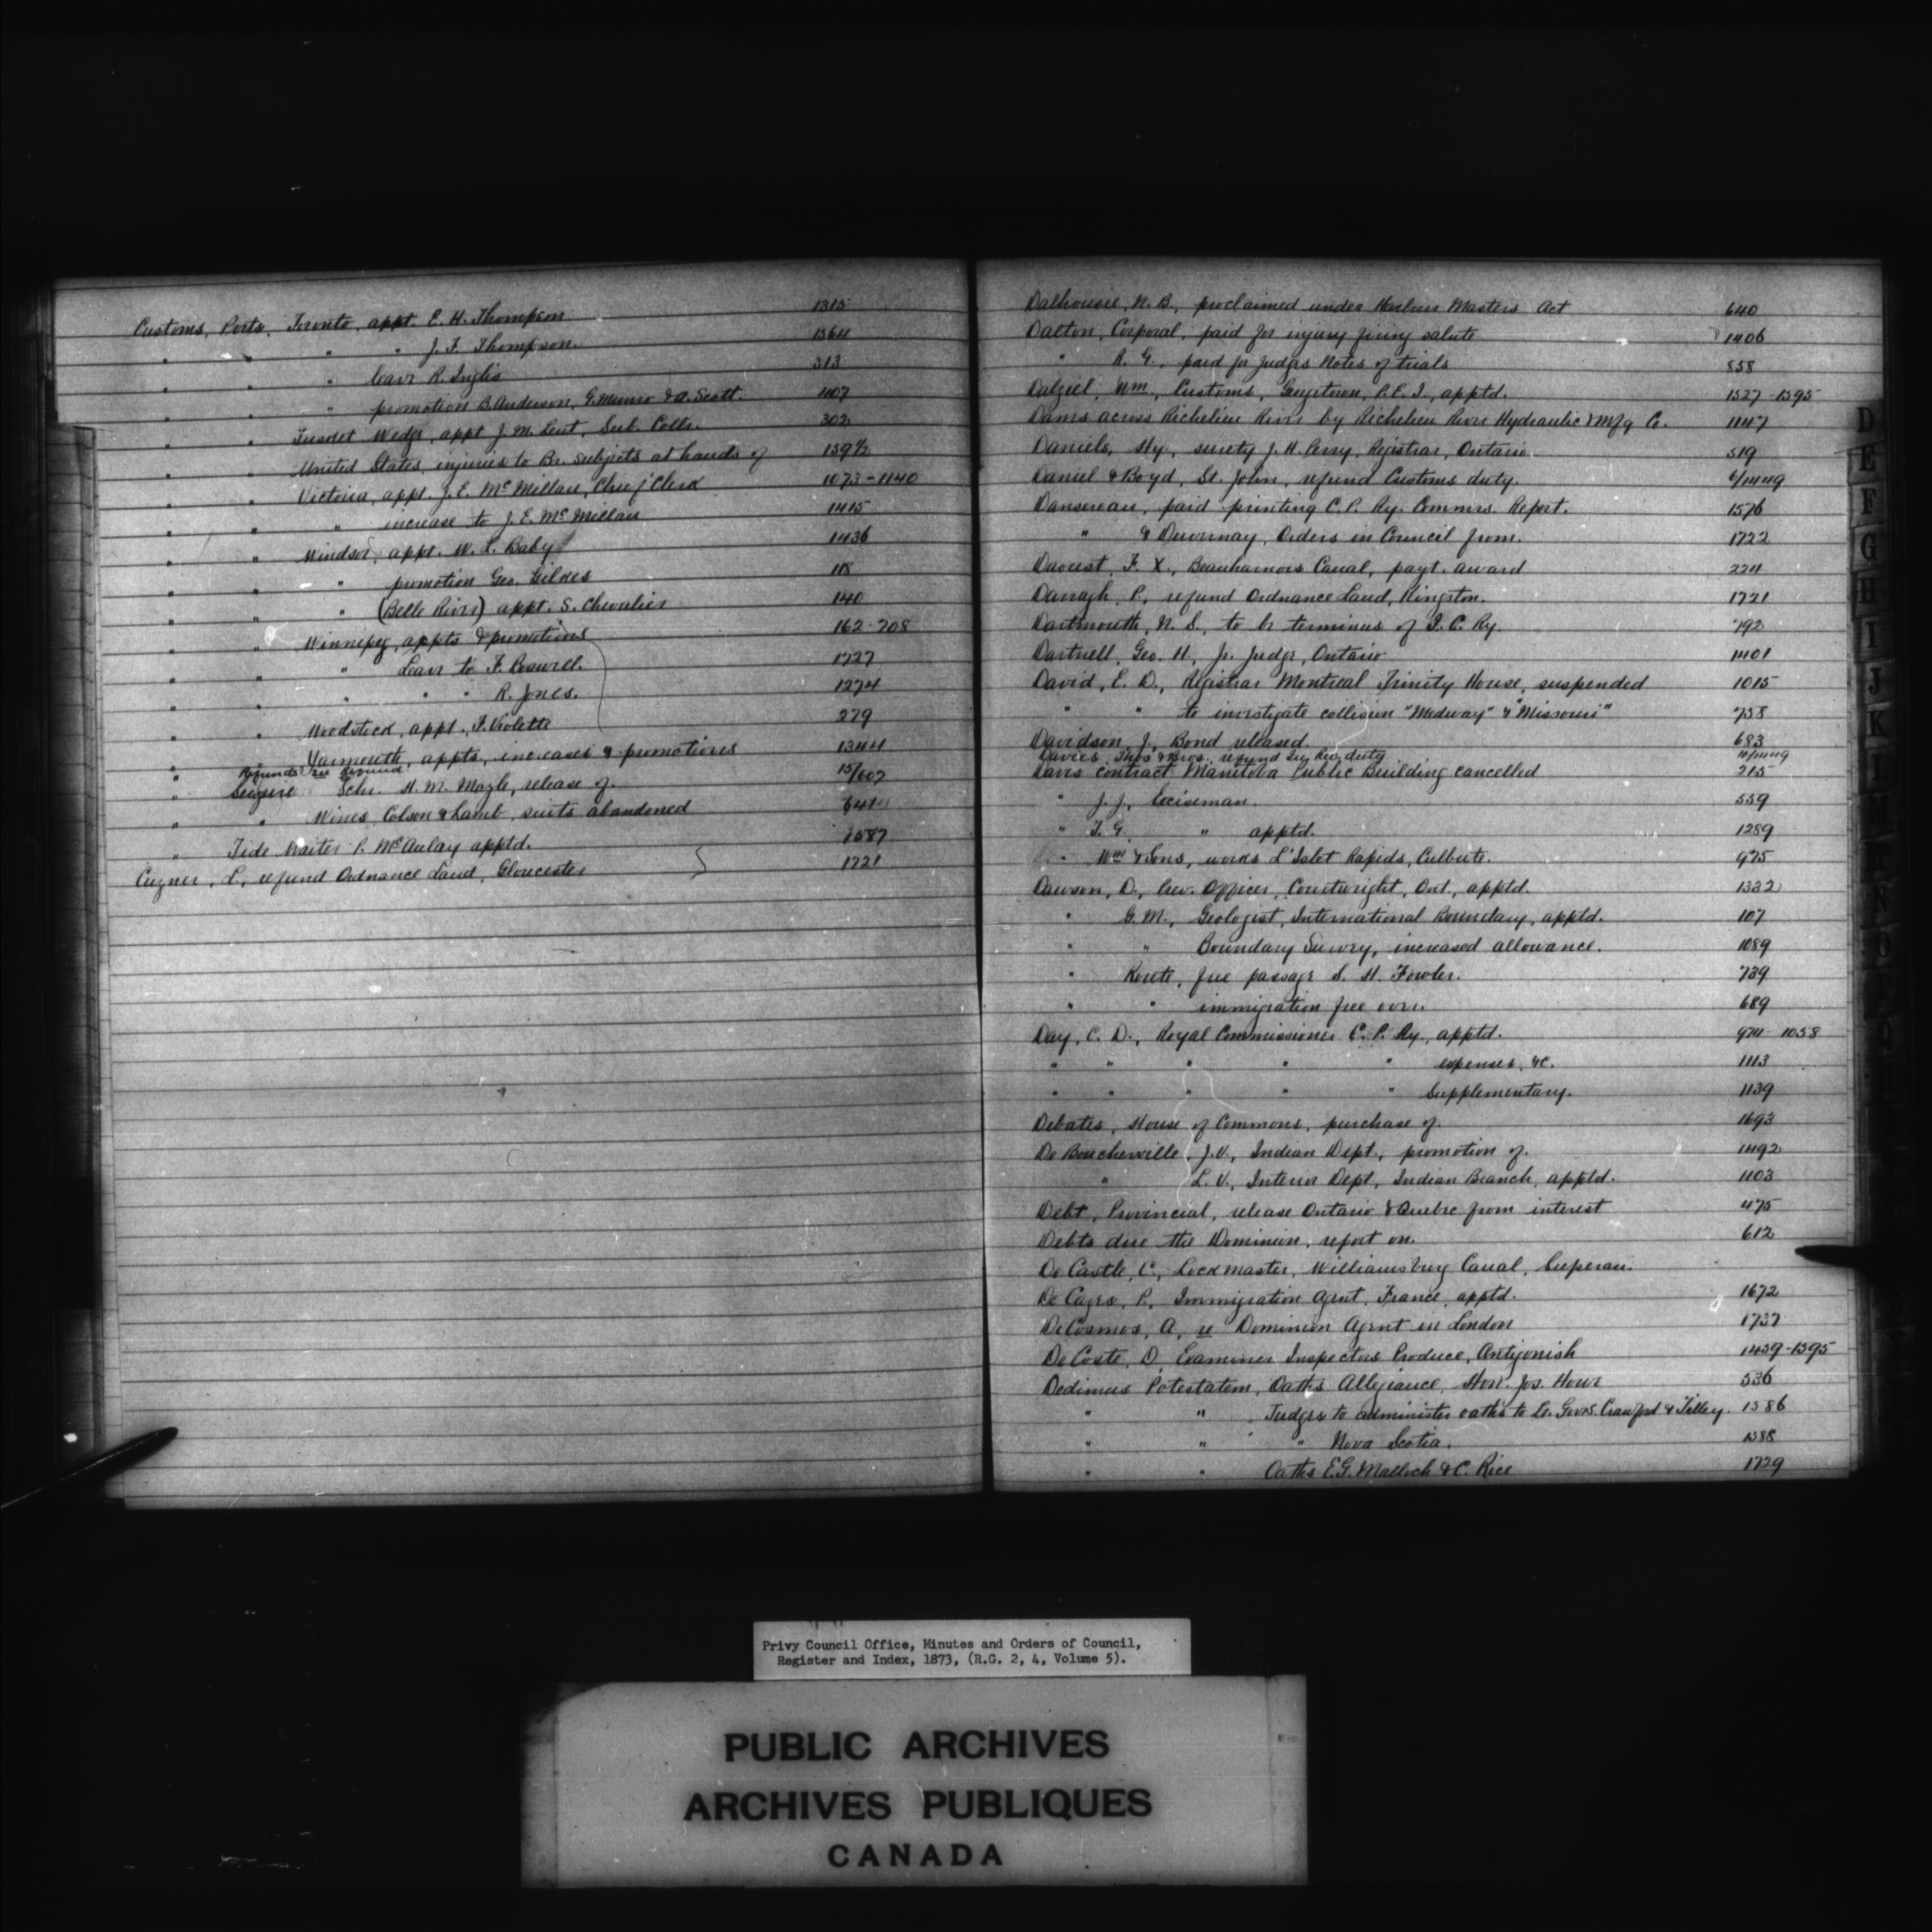 Customs, Ports, Toronto, appt. E. H. Thompson 1315
" " " " J. F. Thompson. 1564
" " " leave R. Inglis 313
" " " promotion B. Anderson, G. Munro & A. Scott. 1107
" " Tusket Wedge, appt J. M. Lent, Sub. Collr. 302
" " United States, injuries to Br. Subjects at hands of 159½
" " Victoria, appt. J. E. McMillan, Chief Clerk 1073-1140
" " " increase to J. E. McMillan 1415
" " Windsor, appt. W. L. Baby 1436
" " " promotion Geo. Gilkes 118
" " " (Belle River) appt. S. Chevalier 140
" " Winnipeg, appts & promotions 162-708
" " " Leave to F. Boswell. 1727
" " " " " R. Jones. 1274
" " Woodstock, appt., F. Violette 279
" " Yarmouth, appts, increases & promotions 1344
" Refunds see Refund
" Seizure Schr. H. M. Mozle, release of. 15/607
" " Wines, Colson & Lamb, suits abandoned 641
" Tide Waiter P. McAulay apptd. 1587
Cuzner, L., refund Ordnance Land, Gloucester 1721
Dalhousie, N. B., proclaimed under Harbour Masters Act 640
Dalton, Corporal, paid for injury firing salute 1406
" R. G., paid for Judges Notes of trials 858
Dalziel, Wm, Customs, Georgetown, P. E. I., apptd. 1527-1595
Dams across Richelieu River by Richelieu River Hydraulic & Mfg Co. 1147
Daniels, Hy., surety J. H. Perry, Registrar, Ontario 519
Daniel & Boyd, St. John, refund Customs duty. 6/1449
Dansereau, paid printing C. P. Ry. Commrs. Report. 1576
" & Duvernay, Orders in Council from. 1722
Daoust, F. X., Beauharnois Canal, payt. award 224
Darragh, P., refund Ordnance Land, Kingston. 1721
Dartmouth, N. S., to be terminus of I. C. Ry. 792
Dartnell, Geo. H., Jr. Judge, Ontario 1401
David, E. D., Registrar Montreal Trinity House, suspended 1015
" " to investigate collision "Medway" & "Missouri" 758
Davidson J., Bond released. 683
Davies, Thos & Bros., refund In. Rev. duty 10/1449
Davis contract Manitoba Public Building cancelled 215
" J. J., Exciseman. 559
" T. G. " apptd. 1289
" Wm & Sons, works L'Islet Rapids, Culbute. 975
Dawson, D., Prev. Officer, Courtwright, Ont., apptd. 1332
" G. M., Geologist, International Boundary, apptd. 107
" " Boundary Survey, increased allowance. 1089
" Route, free passage S. H. Fowler. 739
" " immigration free over. 689
Day, C. D., Royal Commissioner C. P. Ry., apptd. 974-1058
" " " " " expenses, &c. 1113
" " " " " Supplementary. 1139
Debates, House of Commons, purchase of. 1693
De Boucherville, J. V., Indian Dept., promotion of. 1492
" L. V., Interior Dept, Indian Branch, apptd. 1103
Debt, Provincial, release Ontario & Quebec from interest 475
Debts due the Dominion, report on. 612
De Castle, C., Lockmaster, Williamsburg Canal, Superan.
De Cazes, P., Immigration Agent, France, apptd. 1672
DeCosmos, A, re Dominion Agent in London 1737
De Coste, D, Examiner Inspectors Produce, Antigonish 1459-1595
Dedimus Potestatem, Oaths Allegiance, Hon. Jos. Howe 536
" " Judges to administer oaths to Lt. Govrs. Crawford & Tilley. 1586
" " " Nova Scotia. 1588
" " Oaths E. G. Malloch & C. Rice 1729
D
E
F
G
H
I
J
K
N
O
Privy Council Office, Minutes and Orders of Council,
Register and Index, 1873, (R.G. 2, 4, Volume 5).
PUBLIC ARCHIVES
ARCHIVES PUBLIQUES
CANADA